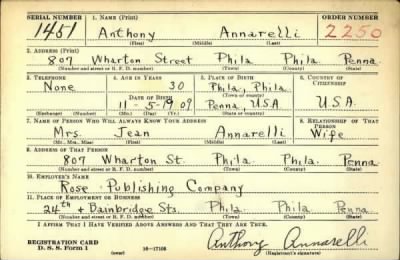 SERIAL NUMBER 1. NAME (Print) ORDER NUMBER
1451 Anthony Annarelli 2250
(First) (Middle) (Last)
2. ADDRESS (Print)
807 Wharton Street Phila Phila Penna
(Number and street or R. F. D. number) (Town) (County) (State)
3. TELEPHONE 4. AGE IN YEARS 5. PLACE OF BIRTH 6. COUNTRY OF CITIZENSHIP
None 30 Phila, Phila
DATE OF BIRTH (Town or county)
11-5-1909 Penna, U.S.A. U.S.A.
(Exchange) (Number) (Mo.) (Day) (Yr.) (State or country)
7. NAME OF PERSON WHO WILL ALWAYS KNOW YOUR ADDRESS 8. RELATIONSHIP OF THAT PERSON
Mrs. Jean Annarelli Wife
(Mr., Mrs., Miss) (First) (Middle) (Last)
9. ADDRESS OF THAT PERSON
807 Wharton St. Phila. Phila. Penna
(Number and street or R. F. D. number) (Town) (County) (State)
10. EMPLOYER'S NAME
Rose Publishing Company
11. PLACE OF EMPLOYMENT OR BUSINESS
24th + Bainbridge Sts. Phila Phila Penna
(Number and street or R. F. D. number) (Town) (County) (State)
I AFFIRM THAT I HAVE VERIFIED ABOVE ANSWERS AND THAT THEY ARE TRUE.
REGISTRATION CARD
D. S. S. Form 1 (over) 16—17105 Anthony Annarelli
(Registrant's signature)